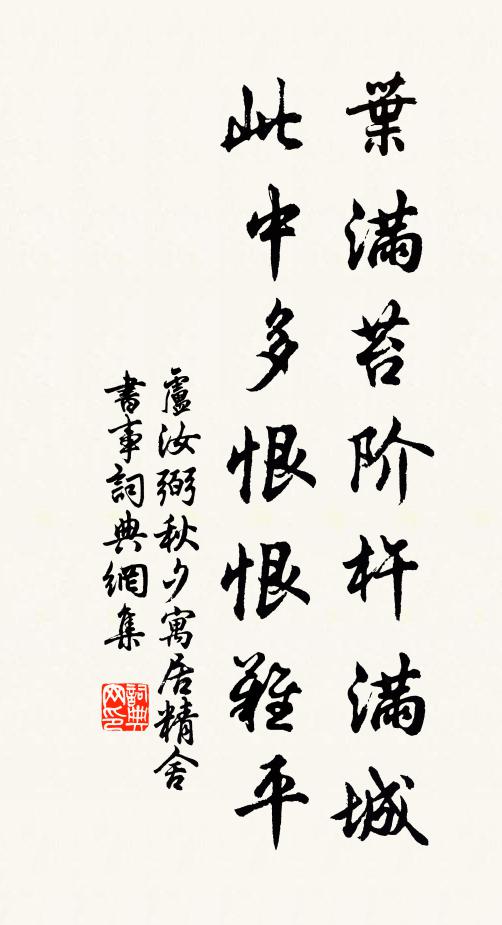 葉满苔阶杵满城
此中多恨恨難平
盧汝弼秋夕寓居精舍
書事詞典網集
詞典网印